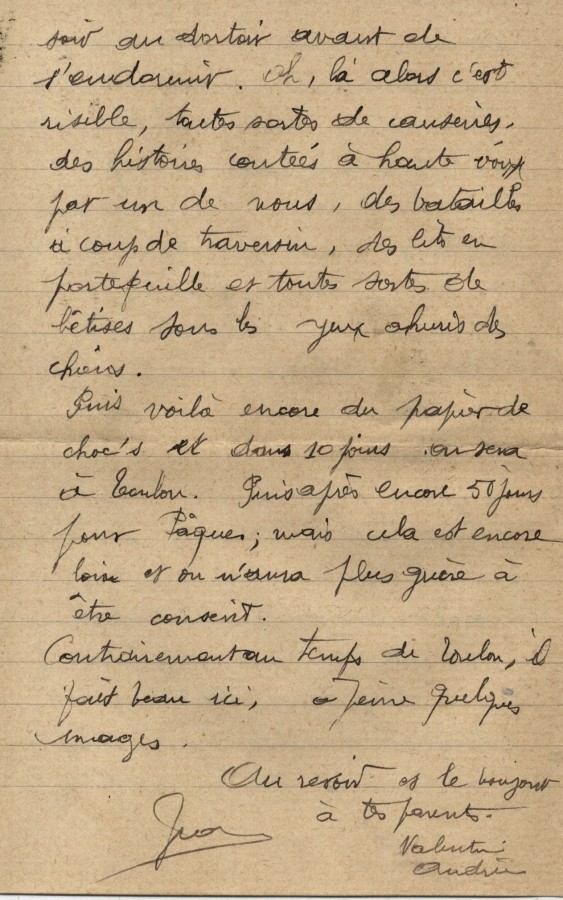 soir au dortoir avant de
s'endormir. Oh, là alors c'est
risible, toutes sortes de causeries,
des histoires contées à haute voix
par un de nous, des batailles
à coup de traversin, des lits en
portefeuille et toutes sortes de
bêtises sous les yeux ahuris des
chiens.
Puis voilà encore du papier de
choc's et dans 10 jours on sera
à Toulon. Puis après encore 50 jours
pour Pâques; mais cela est encore
loin et on n'aura plus guère à
être conscrit.
Contrairement au temps de Toulon, il
fait beau ici, à peine quelques
nuages.
Au revoir et le bonjour
à tes parents.
Valentin
André